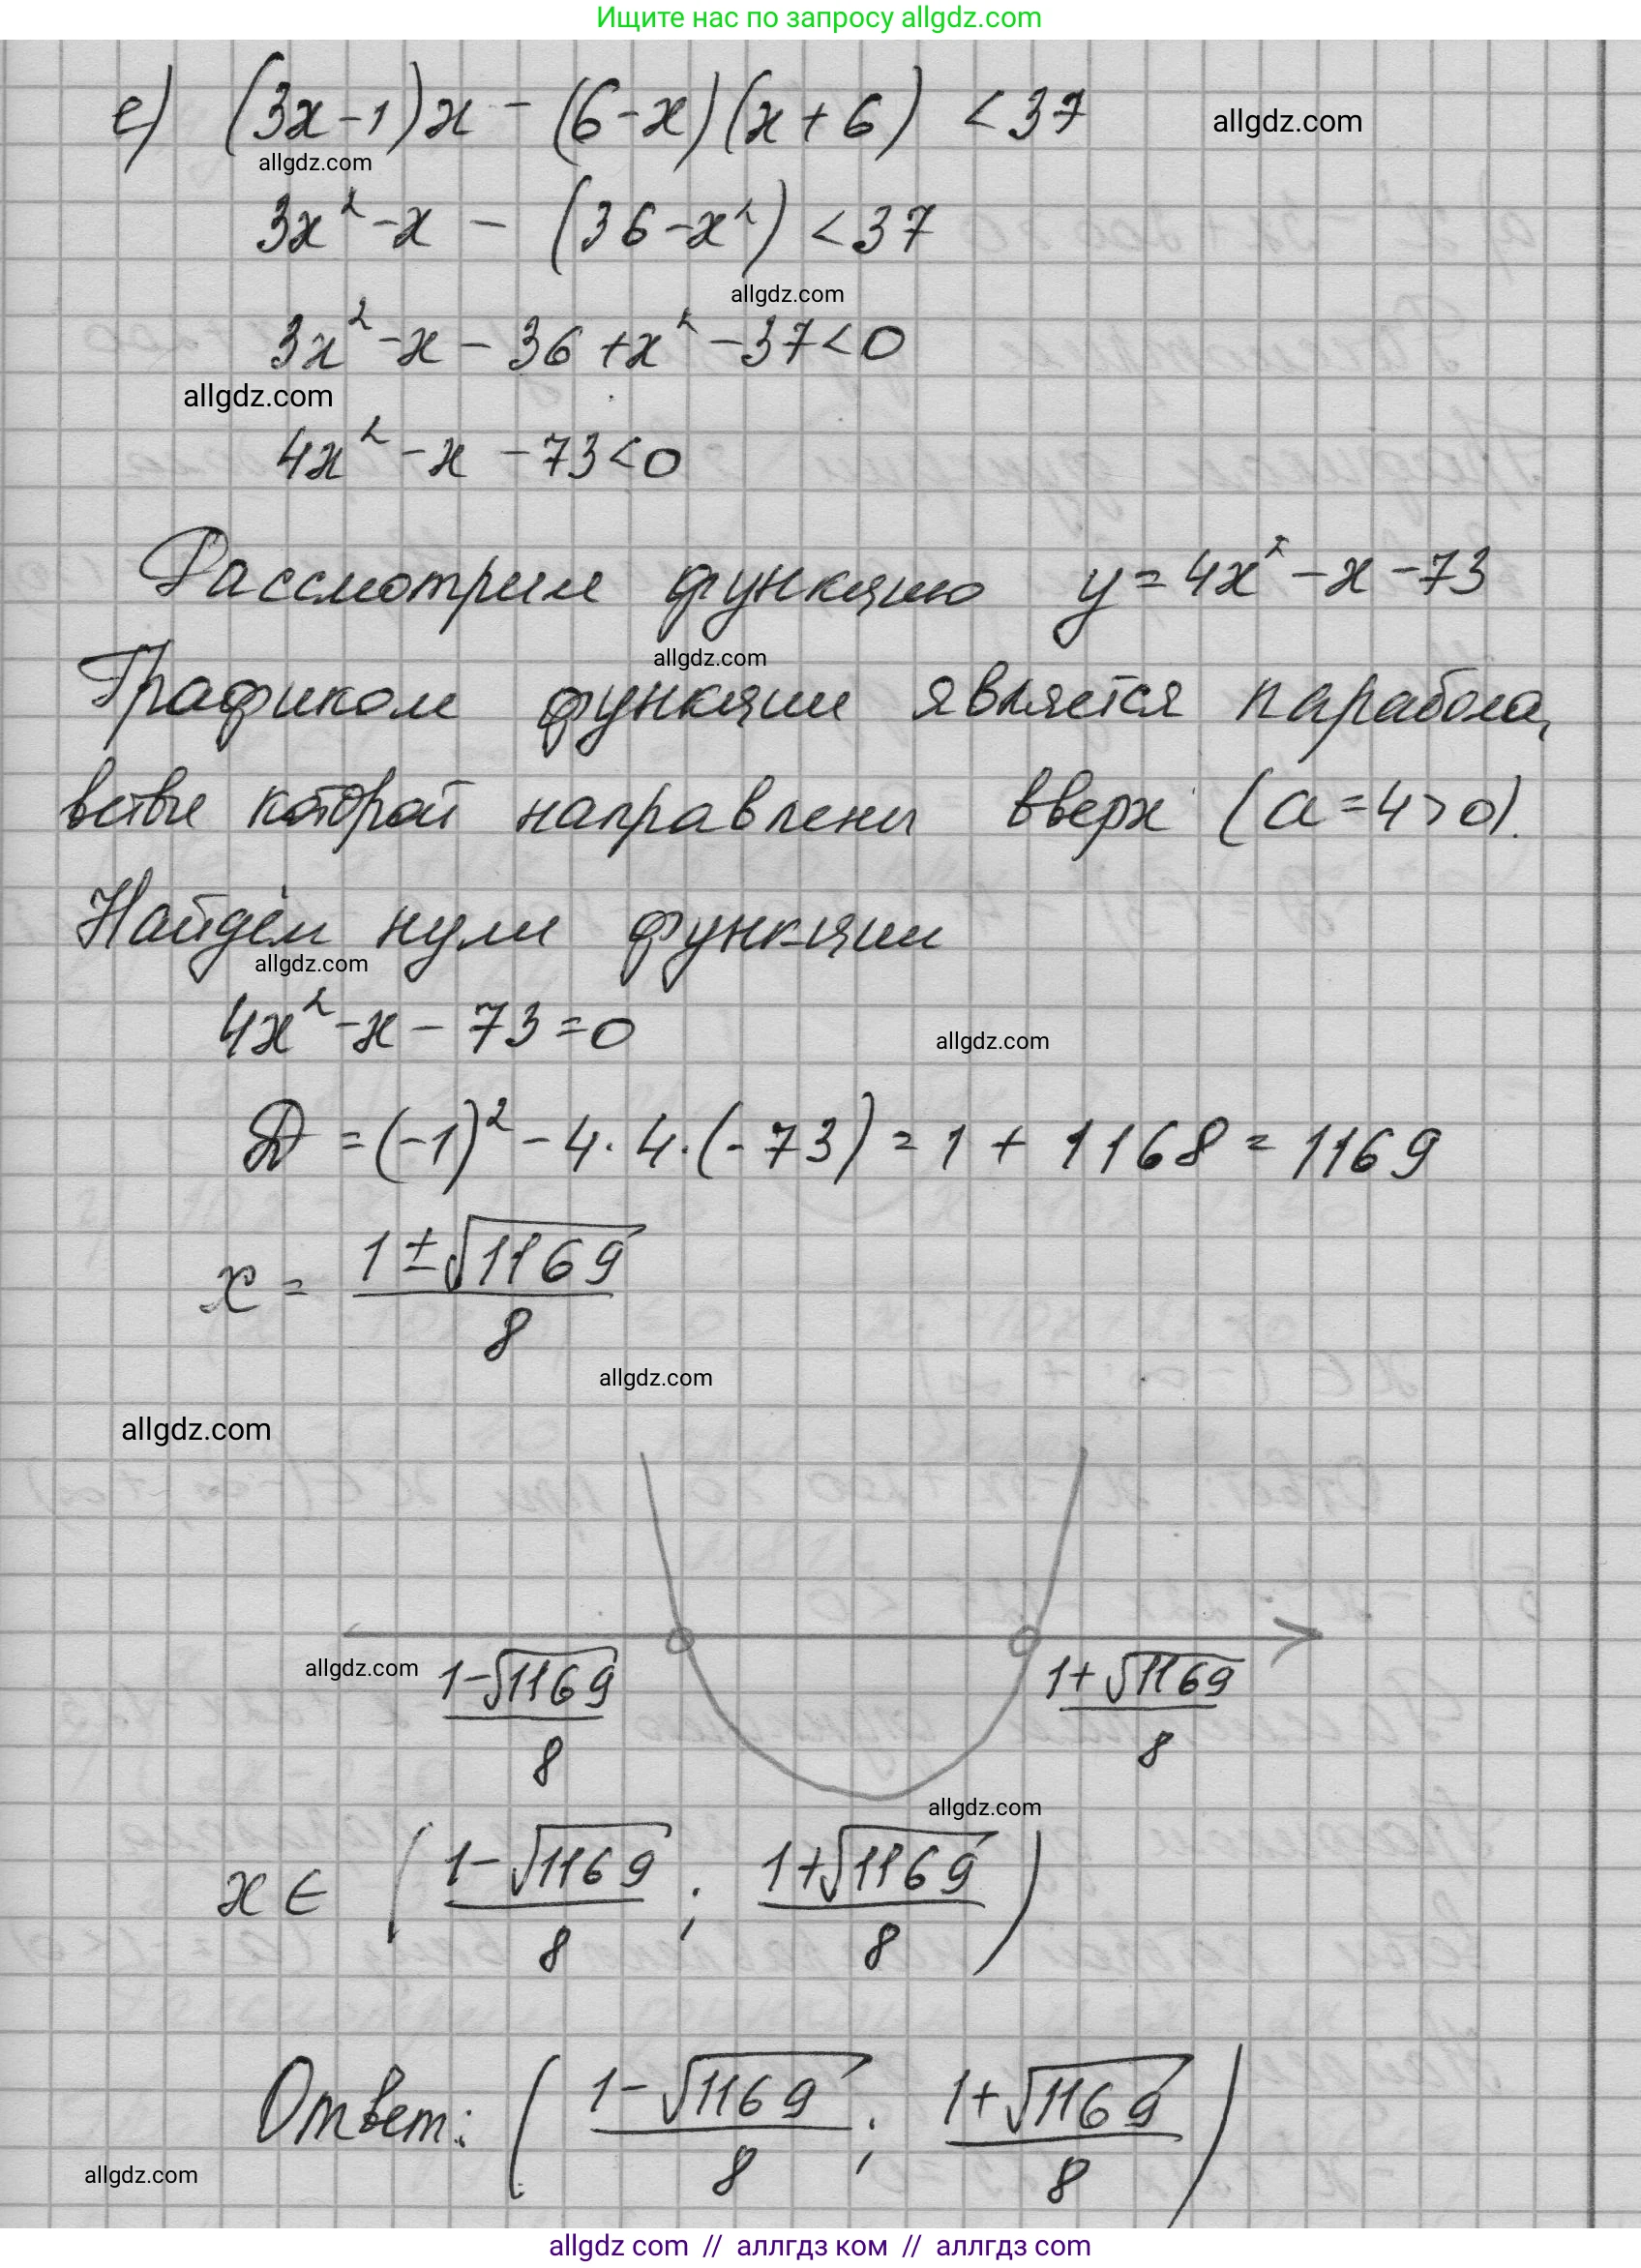 Ищите нас по запросу allgdz.com
е) (3x-1)x - (6-x)(x+6) < 37
allgdz.com
allgdz.com
3x² - x - (36 - x²) < 37
allgdz.com
3x² - x - 36 + x² - 37 < 0
allgdz.com
4x² - x - 73 < 0
Рассмотрим функцию y = 4x² - x - 73
allgdz.com
Графиком функции является парабола,
ветви которой направлены вверх (a = 4 > 0).
Найдём нули функции
allgdz.com
4x² - x - 73 = 0
allgdz.com
D = (-1)² - 4 · 4 · (-73) = 1 + 1168 = 1169
x = (1 ± √1169)/8
allgdz.com
allgdz.com
allgdz.com
(1-√1169)/8 (1+√1169)/8
allgdz.com
x ∈ ((1-√1169)/8 ; (1+√1169)/8)
Ответ: ((1-√1169)/8 ; (1+√1169)/8)
allgdz.com
allgdz com // аллгдз ком // аллгдз com